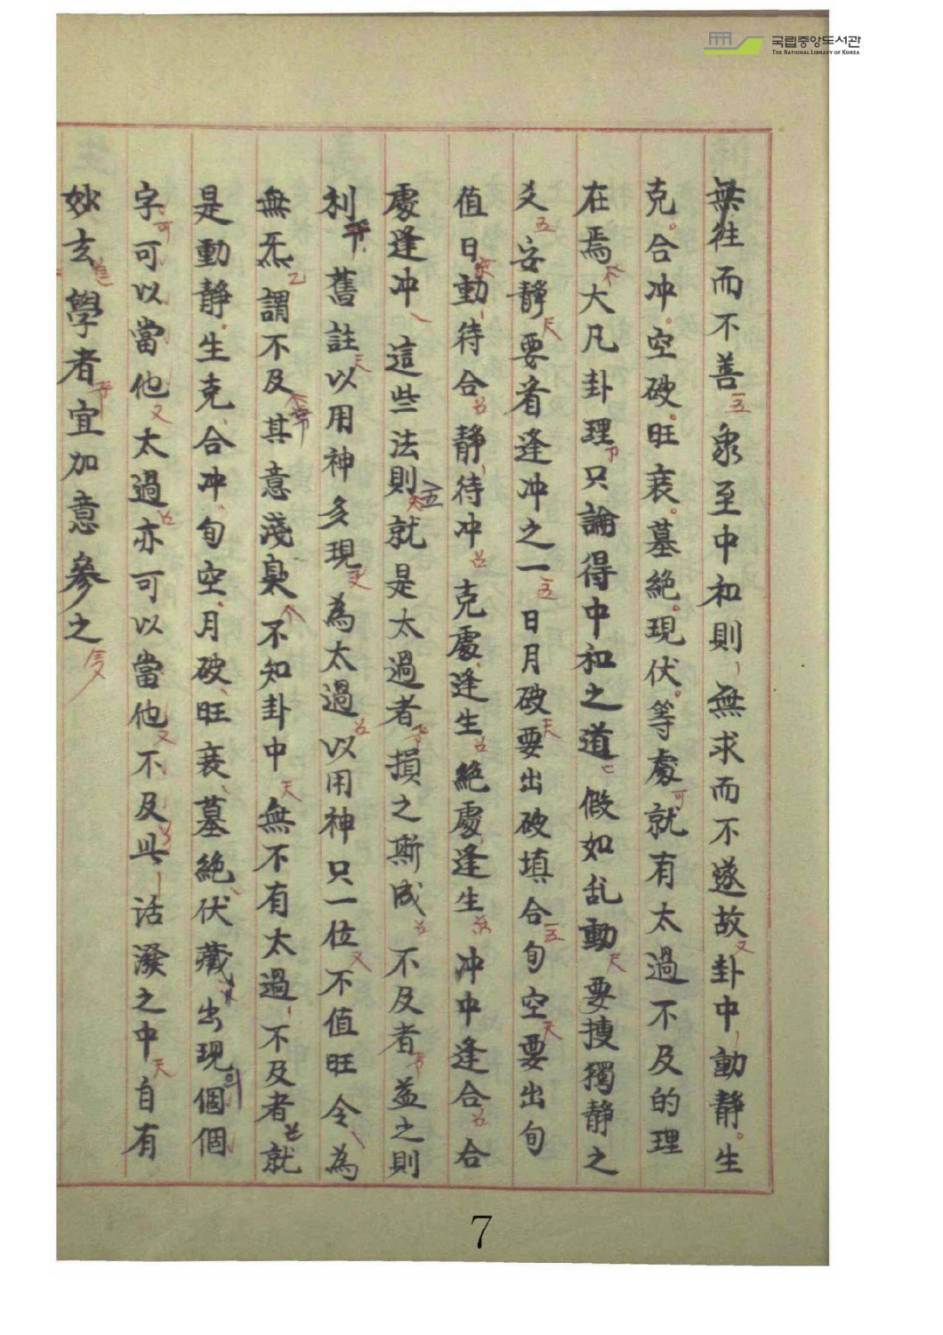 국립중앙도서관
THE NATIONAL LIBRARY OF KOREA
無往而不善象至中和則無求而不遂故卦中動靜生
克合冲空破旺衰墓絶現伏等處就有太過不及的理
在焉大凡卦理只論得中和之道假如乱動要搜獨靜之
爻安靜要看逢冲之一日月破要出破填合旬空要出旬
值日動待合靜待冲克處逢生絶處逢生冲中逢合合
處逢冲這些法則就是太過者損之斯成不及者益之則
利舊註以用神多現為太過以用神只一位不值旺令為
無炁謂不及其意淺臭不知卦中無不有太過不及者就
是動靜生克合冲旬空月破旺衰墓絶伏藏出現個個
字可以當他太過亦可以當他不及此活潑之中自有
妙玄學者宜加意參之
7